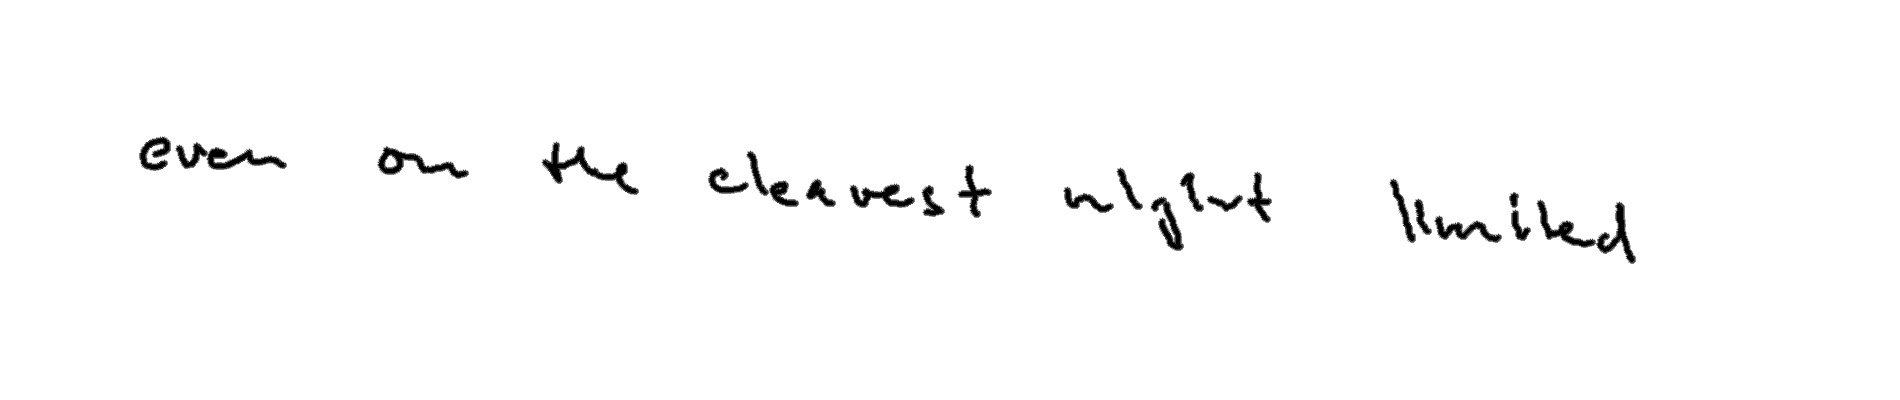 even on the clearest night limited